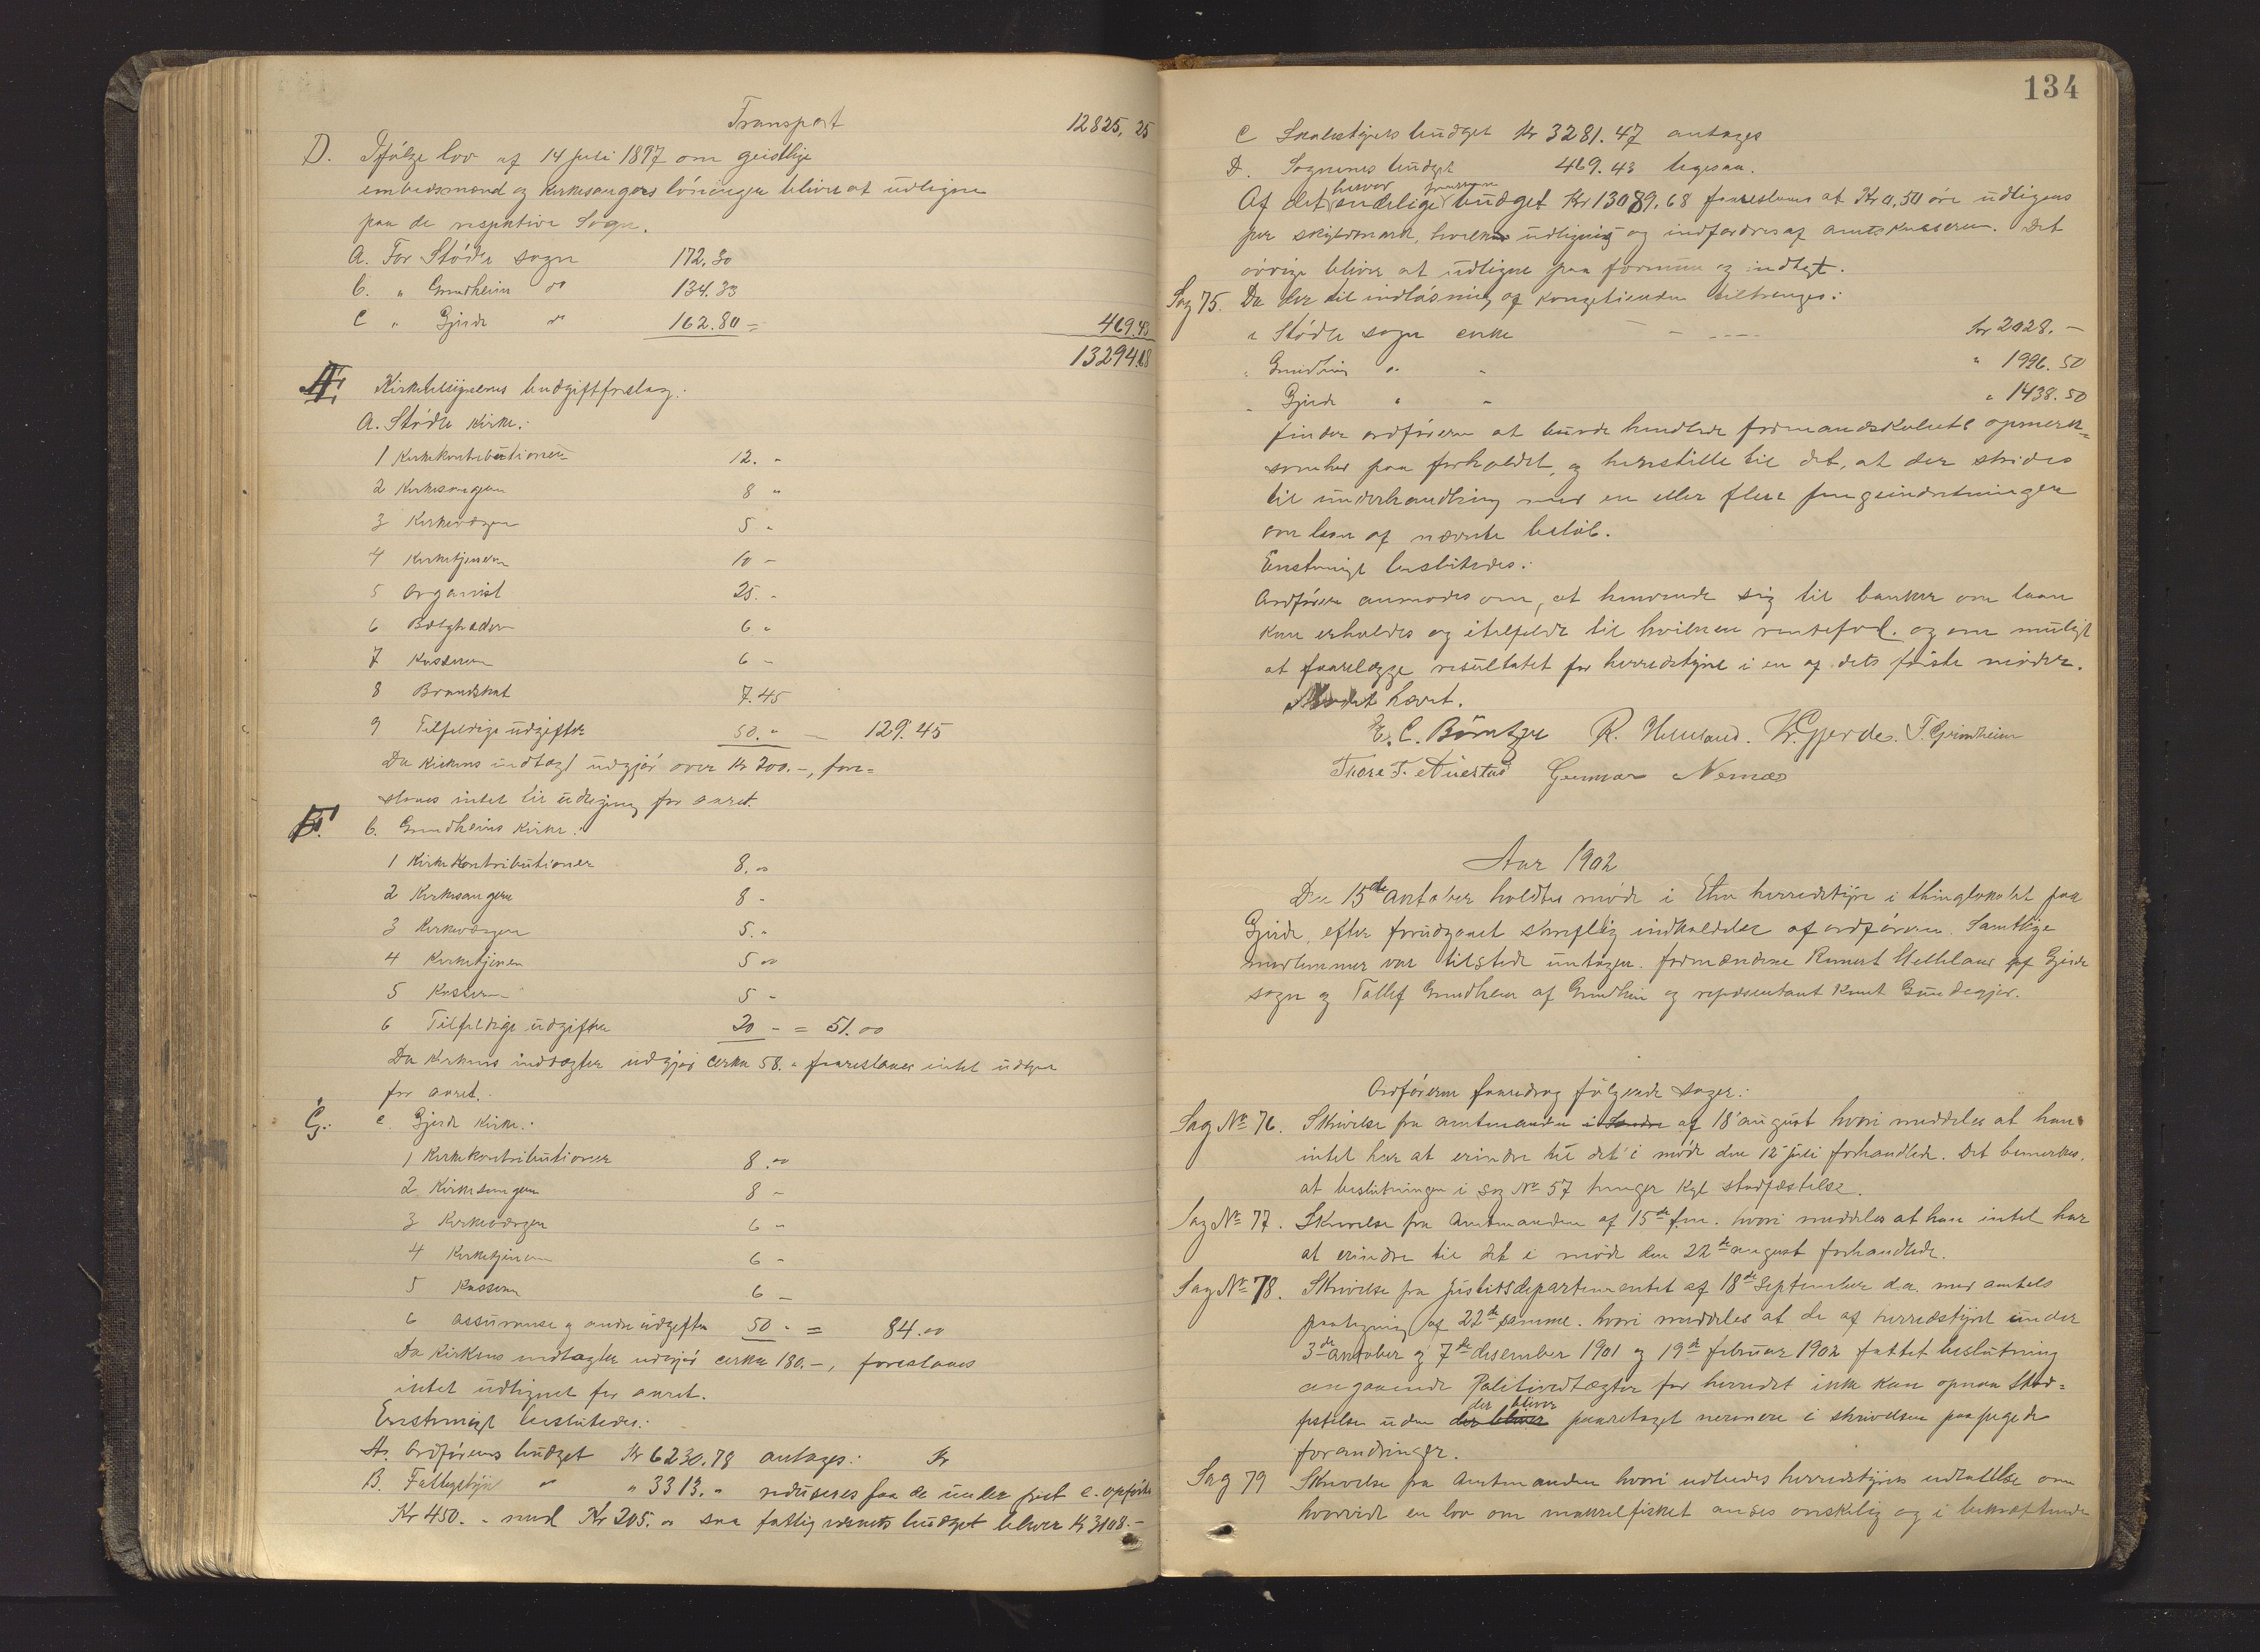 Transport 12825,25
D. Ifølge lov af 14 juli 1897 om geistlige
embedsmænd og kirkesangers lønninger bliver at udligne
paa de respektive Sogn.
A. For Stødle sogn 172.30
b. " Grindheim do 134.33
C " Gjerde do 162.80 = 469.43
13294.68
A. Kirketilsynenes budgetforslag:
A. Stødle Kirke:
1 Kirkekontributioner 12. "
2 Kirkesangeren 8 "
3 Kirkevergen 5 "
4 Kirketjeneren 10 -
5 Organist 25. -
6 Belgtræderen 6 "
7 Kassereren 6 -
8 Brandskat 7.45
9 Tilfeldige udgifter 50. " - 129.45
Da kirkens indtægt udgjør over Kr 200.-, fore=
slaaes intet til udligning for aaret.
B. b. Grindheims Kirke:
1 Kirkekontributioner 8.00
2 Kirkesangeren 8 -
3 Kirkevergen 5. "
4 Kirketjeneren 5 00
5 Kassereren 5 -
6 Tilfeldige udgifter 20 - = 51.00
Da kirkens indtægter udgjør cirka 58. " foreslaaes intet udlignet
for aaret.
C. c. Gjerde Kirke:
1 Kirkekontributioner 8.00
2 Kirkesangeren 8 -
3 Kirkevergen 6 -
4 Kirketjeneren 6 -
5 Kasseren 6 -
6 Assuranse og andre udgifter 50 - = 84.00
Da kirkens indtægter udgjør cirka 180.-, foreslaaes
intet udlignet for aaret.
Enstemmigt besluttedes:
A. Ordførerens budget Kr 6230.78 antages: Kr
B. Fattigstyrets " " 3313. " reduseres fra de under post c. opførte
Kr 450. - med Kr 205.00 saa fattigvæsenets budget bliver Kr 3108.-
134
C Skolestyrets budget Kr 3281.47 antages
D. Sognenes budget 469.43 ligesaa.
Af det herved endelige budget Kr 13089.68 foreslaaes at Kr 0,50 øre udlignes
per skyldmark, hvilket udlignes og indfordres af amtskassereren. Det
øvrige bliver at udligne paa formue og indtægt.
Sag 75. Da der til indløsning af kongetienden tiltrenges:
i Stødle sogn cirka - - ---- Kr 2028.-
" Grindheim do " " 1996.50
" Gjerde " " " 1438.50
finder ordføreren at burde henlede formandskabets opmerk=
somhed paa forholdet, og henstille til det, at der skrides
til underhandling med en eller flere pengeindretninger
om laan af nævnte beløb.
Enstemmigt besluttedes:
Ordføreren anmodes om, at henvende sig til banker om laan
kan erholdes og i tilfelde til hvilken rentefod. og om muligt
at forelægge resultatet for herredstyret i en af dets første møder.
Mødet hævet.
E. C. Børretzen R. Helleland. K. Gjerde. T. Grindheim
Thore T. Austad Gunnar Nernæs
Aar 1902
Den 15de oktober holdtes møde i Etne herredstyre i thinglokalet paa
Gjerde, efter forudgaaet skreftlig indkaldelse af ordføreren. Samtlige
medlemmer var tilstede undtagen formændene Reinert Helleland af Gjerde
sogn og Tollef Grindheim af Grindheim og representant Knut Gundegjer.
Ordføreren foredrog følgende sager:
Sag No 76. Skrivelse fra amtmanden i Søndre af 18 august hvori meddeles at han
intet har at erindre til det i møde den 12 juli forhandlede. Det bemerkes,
at beslutningen i sag No 57 trenger Kgl stadfæstelse.
Sag No 77. Skrivelse fra Amtmanden af 15de f.m. hvori meddeles at han intet har
at erindre til det i møde den 22de august forhandlede.
Sag No 78. Skrivelse fra Justitsdepartementet af 18de September d.a. med amtets
paategning af 22de samme. hvori meddeles at de af herredstyret under
3de oktober og 7de desember 1901 og 19de februar 1902 fattet beslutning
angaaende Politivedtægter for herredet ikke kan opnaa Stad=
festelse uden der bliver der bliver foretaget nermere i skrivelsen paapegede
forandringer.
Sag 79 Skrivelse fra Amtmanden hvori udbedes herredstyrets udtallelse om
hvorvidt en lov om makrelfisket anses ønskelig og i bekræftende